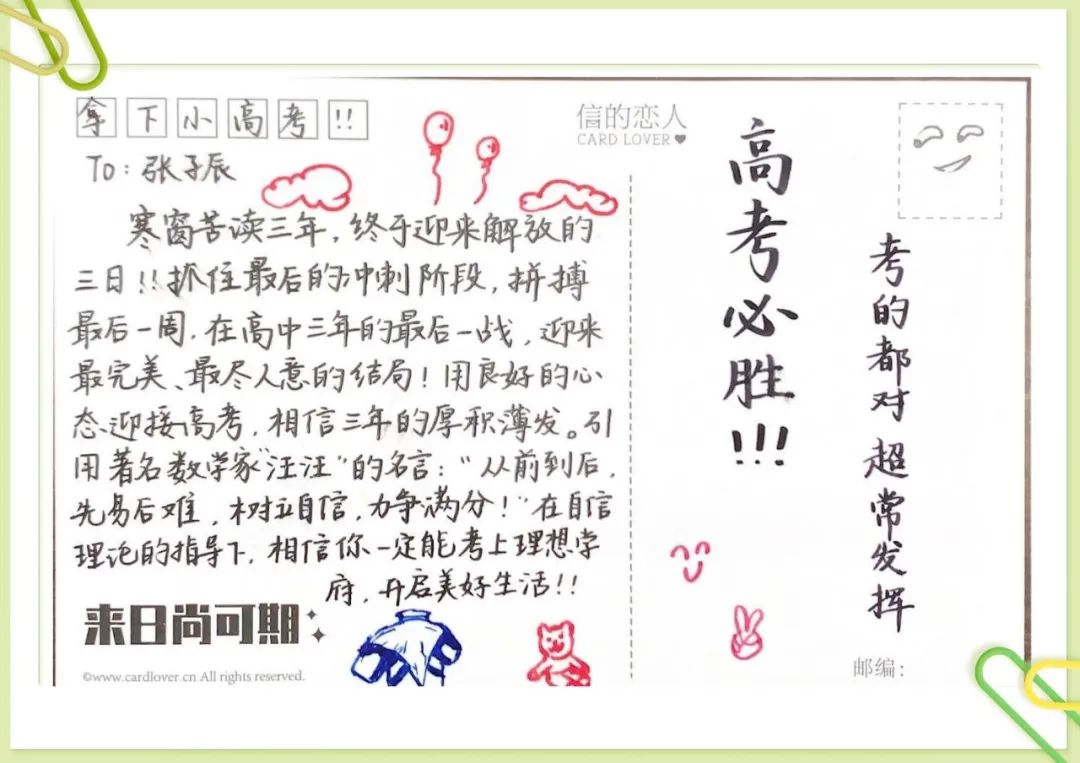 拿下小高考!!
信的恋人
CARD LOVER
To：张子辰
寒窗苦读三年，终于迎来解放的
三日!!抓住最后的冲刺阶段，拼搏
最后一周，在高中三年的最后一战，迎来
最完美、最尽人意的结局！用良好的心
态迎接高考，相信三年的厚积薄发。引
用著名数学家“汪汪”的名言：“从前到后，
先易后难，树立自信，力争满分！”在自信
理论的指导下，相信你一定能考上理想学
府，开启美好生活!!
来日尚可期
©www.cardlover.cn All rights reserved.
高考必胜!!!
考的都对 超常发挥
邮编：